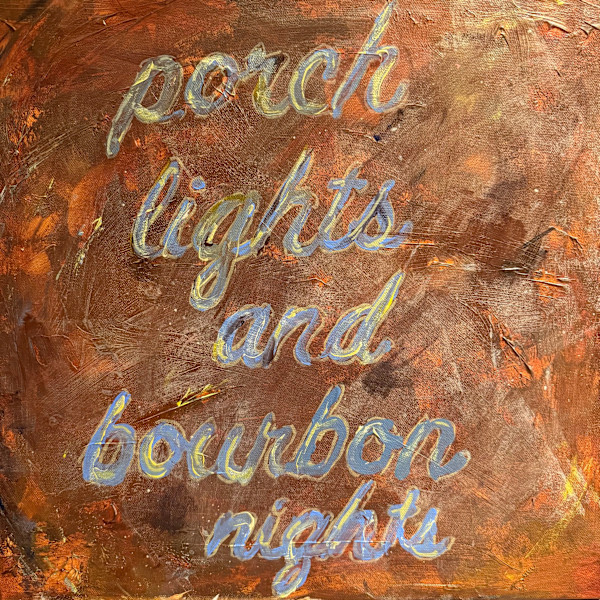 porch
lights
and
bourbon
nights